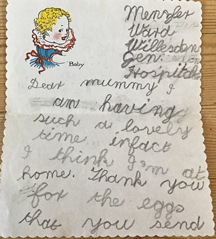 Menzler
Ward
Willesden
Gen.
Hospital
Baby
Dear mummy I
am having
such a lovely
time infact
I think I'm at
home. Thank you
for the eggs
that you send